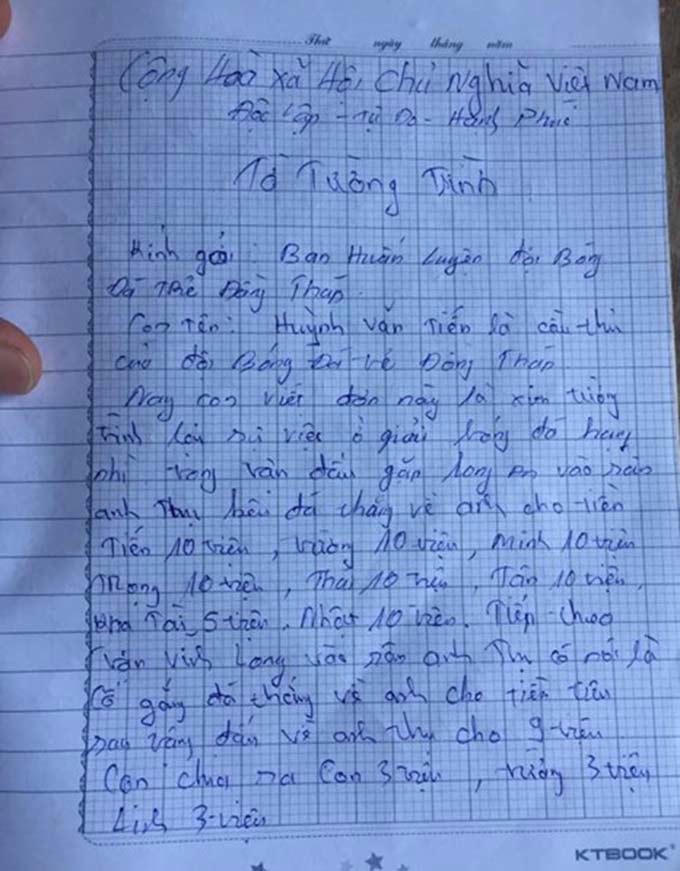 Thứ ngày tháng năm
Cộng Hoà xã Hội chủ Nghĩa Việt Nam
Độc lập - Tự Do - Hạnh Phúc
Tờ Tường Trình
Kính gởi : Ban Huấn Luyện đội Bóng
Đá Trẻ Đồng Tháp.
Con tên : Huỳnh văn Tiến là cầu thủ
của đội Bóng Đá trẻ Đồng Tháp
Nay con viết đơn này là xin tường
trình lại sự việc ở giải bóng đá hạng
nhì trong trận đấu gặp long an vào sân
anh Thụ kêu đá thắng về anh cho tiền
Tiến 10 triệu, trường 10 triệu, Minh 10 triệu
Trọng 10 triệu, Thái 10 triệu, Tân 10 triệu,
Tài 5 triệu, Nhật 10 triệu. Tiếp theo
trận Vĩnh Long vào sân anh Thụ có nói là
Cố gắng đá thắng về anh cho tiền tiêu
sau trận đấu về anh thụ cho 9 triệu
Con chia ra Con 3 triệu, trường 3 triệu
Linh 3 triệu
KTBOOK